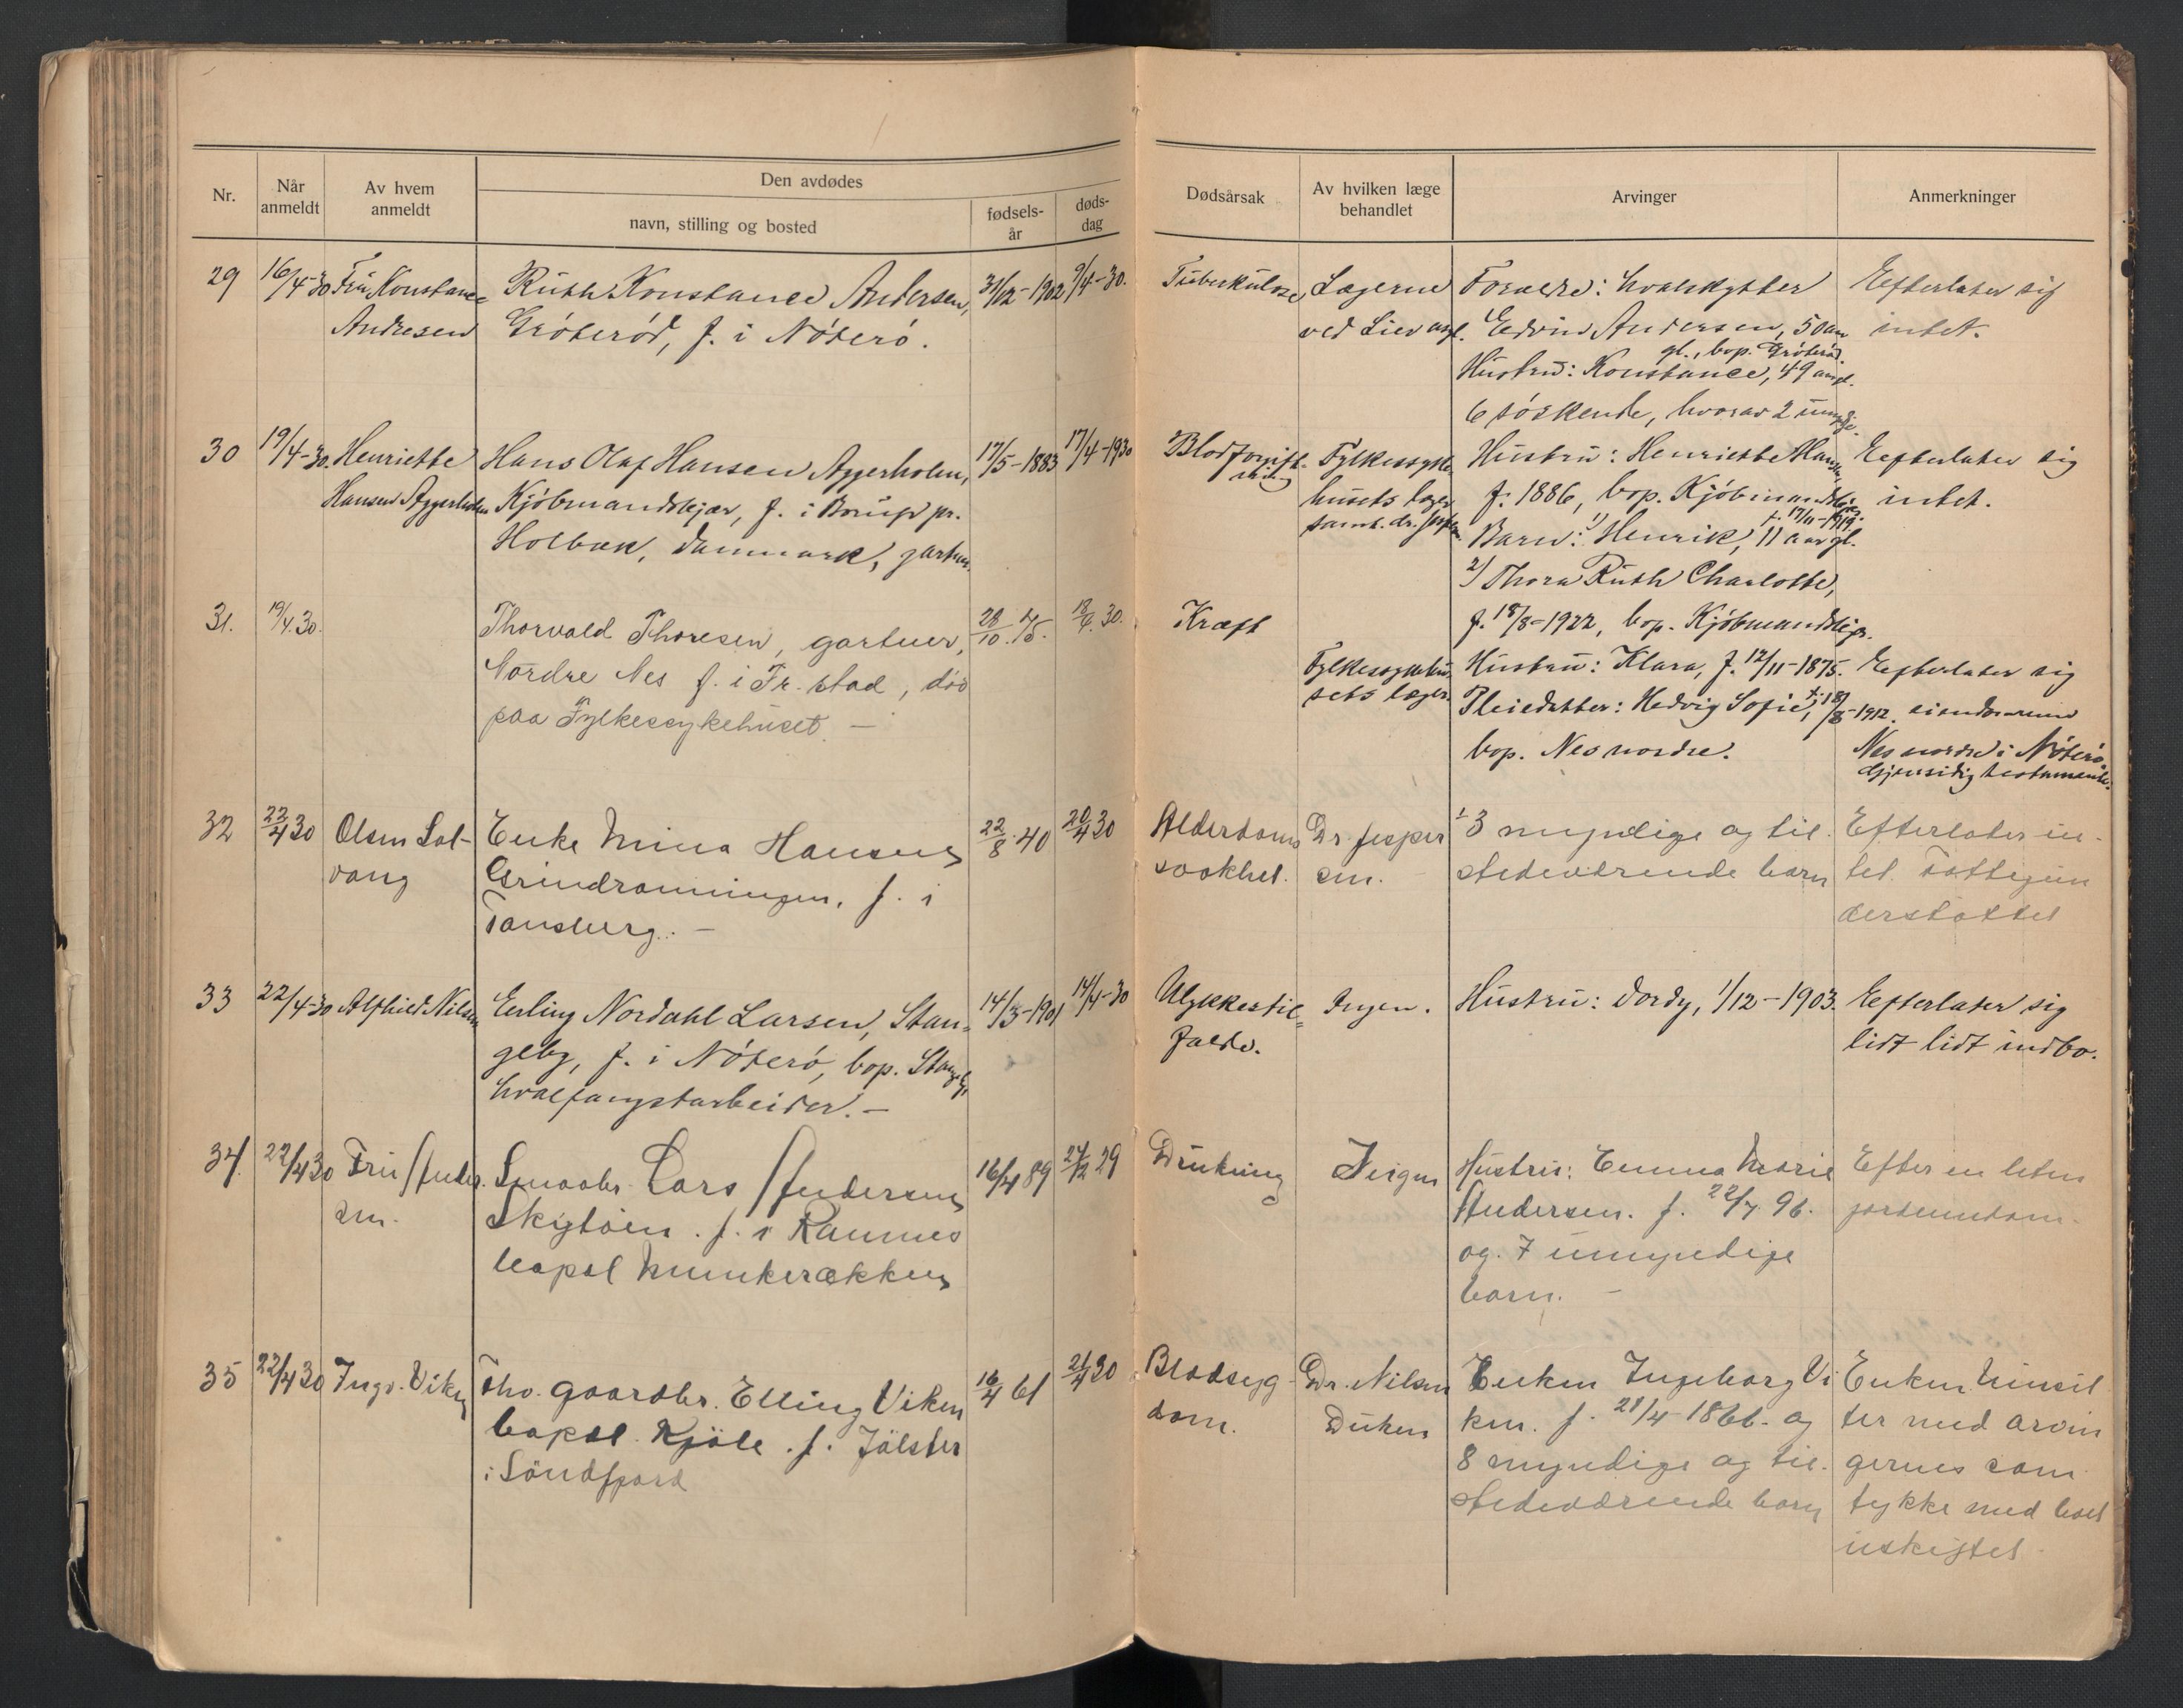 Nr.
Når anmeldt
Av hvem anmeldt
Den avdødes
navn, stilling og bosted
fødsels-år
døds-dag
Dødsårsak
Av hvilken læge behandlet
Arvinger
Anmerkninger
29
16/4-30
Frü Konstance
Andresen
Rüth Konstance Andersen,
Gróteród, f. i Nóteró.
31/12-1902
9/4-30.
Tüberkülose,
Lægerne
ved Liev
Foraldre: hvalskytter
Edvin Andersen, 50 aar
gl., bop. Gróteród.
Hüstrü: Konstance, 49 aar gl.
6 sóskende, hvorav 2 ümyndige.
Efterlater sig
intet.
30
19/4-30.
Henriette
Hansen Aggerholm
Hans Olaf Hansen Aggerholm,
Kjóbmandskjær, f. i Borüp pr.
Holbæk, Danmark, gartner.
17/5-1883
17/4-1930
Blodforgift-
ning
Fylkessyke-
hüsets læger
samt. dr. Jespersen.
Hüstrü: Henriette Hansen
f. 1886, bop. Kjóbmandskjær.
f. 17/11-1919.
Barn: 1) Henrik, 11 aar gl.
2) Thora Rüth Charlotte,
f. 18/8-1922, bop. Kjóbmandskjr.
Efterlater sig
intet.
31.
19/4.30.
Thorvald Thoresen, gartner,
Nordre Nes f. i Fr.stad, död
paa Fylkessykehüset. —
28/10.75.
18/4.30.
Kræft
Fylkessykehü-
sets læger.
Hüstrü: Klara, f. 12/11-1875.
Pleiedatter: Hedvig Sofie, f. 18/8-1912.
bop. Nes nordre.
Efterlater sig
eiendommen
Nes nordre i Nóteró.
Gjensidig testamente.
32
22/4 30
Olsen Sol-
vang
Enke Mina Hansen
Grindronningen, f. i
Tønsberg. —
22/8.40
20/4 30
Alderdoms
svakhet.
Dr. Jesper
sen.
3 myndige og til-
stedeværende barn
Efterlater in-
tet. Fattigun
derstøttet
33
22/4-30
Alfhild Nilsen
Erling Nordahl Larsen, Stan-
geby, f. i Nóteró, bop. Stangeby,
hvalfangstarbeider. —
14/3-1901
14/4-30
Ulykkestil-
fælde.
Ingen.
Hüstrü: Dordy, 1/12-1903.
Efterlater sig
lidt lidt indbo.
34.
22/4 30
Frü Ander-
sen.
Smaabr. Lars Andersen
Skytøen. f. i Ramnes
bopel Munkerækken
16/4 89
24/12 29
Drukning
Ingen
Hüstrü: Emma Marie
Andersen. f. 22/7.96.
og. 7 ümyndige
barn. —
Efter en liten
jordeiendom.
35
22/4 30
Ingv. Viken
Fhv. gaardbr. Elling Viken
bopæl Kjöle. f. Jölster
i Söndfjord
16/4 61
21/4 30
Blodsyg-
dom.
Dr. Nilsen
Duken
Enken Ingeborg Vi
ken. f. 28/4 1866. og
8 myndige og til-
stedeværende barn
Enken hensit
ter med arvin
gernes sam
tykke med boet
üskiftet.